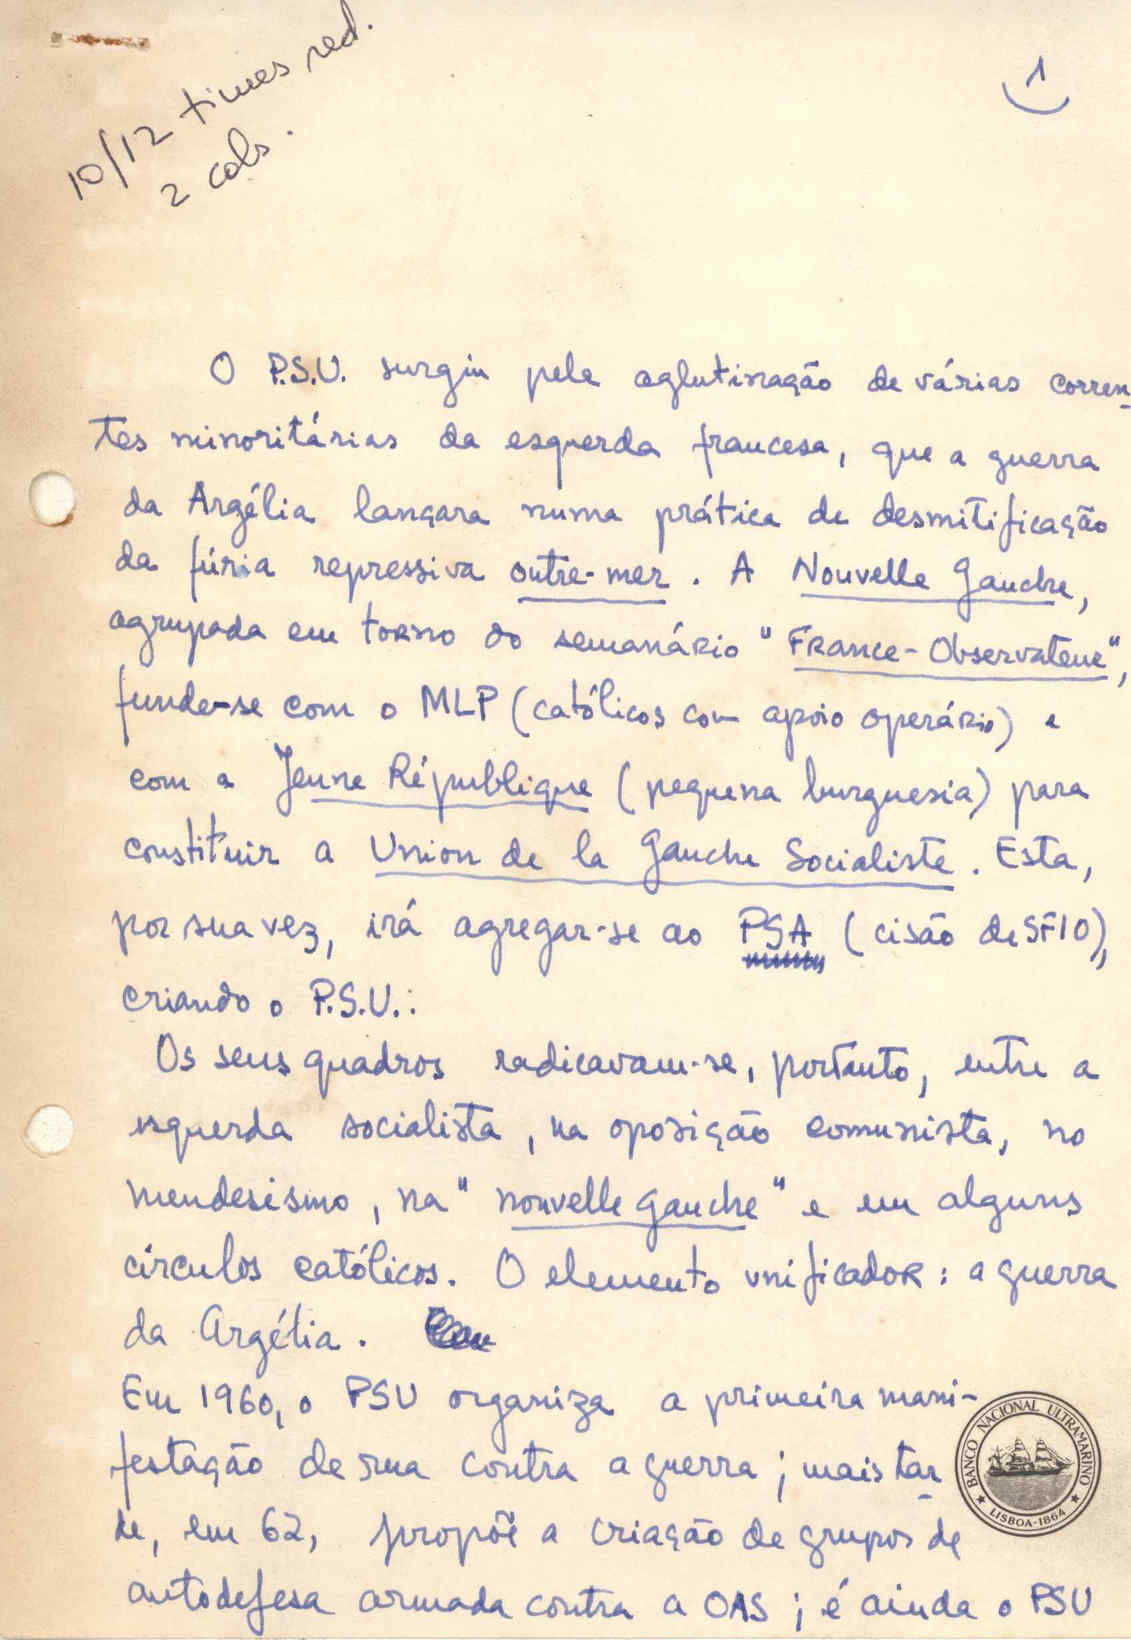 10/12 times red.
2 cols.
1
O P.S.U. surgiu pela aglutinação de várias corren-
tes minoritárias da esquerda francesa, que a guerra
da Argélia lançara numa prática de desmitificação
da fúria repressiva outre-mer. A Nouvelle Gauche,
agrupada em torno do semanário "France-Observateur",
funde-se com o MLP (católicos com apoio operário) e
com a Jeune République (pequena burguesia) para
constituir a Union de la Gauche Socialiste. Esta,
por sua vez, irá agregar-se ao PSA (cisão de SFIO),
criando o P.S.U.:
Os seus quadros radicavam-se, portanto, entre a
esquerda socialista, na oposição comunista, no
mendesismo, na "nouvelle gauche" e em alguns
círculos católicos. O elemento unificador: a guerra
da Argélia.
Em 1960, o PSU organiza a primeira mani-
festação de rua contra a guerra; mais tar-
de, em 62, propõe a criação de grupos de
autodefesa armada contra a OAS; é ainda o PSU
BANCO NACIONAL ULTRAMARINO
LISBOA-1864